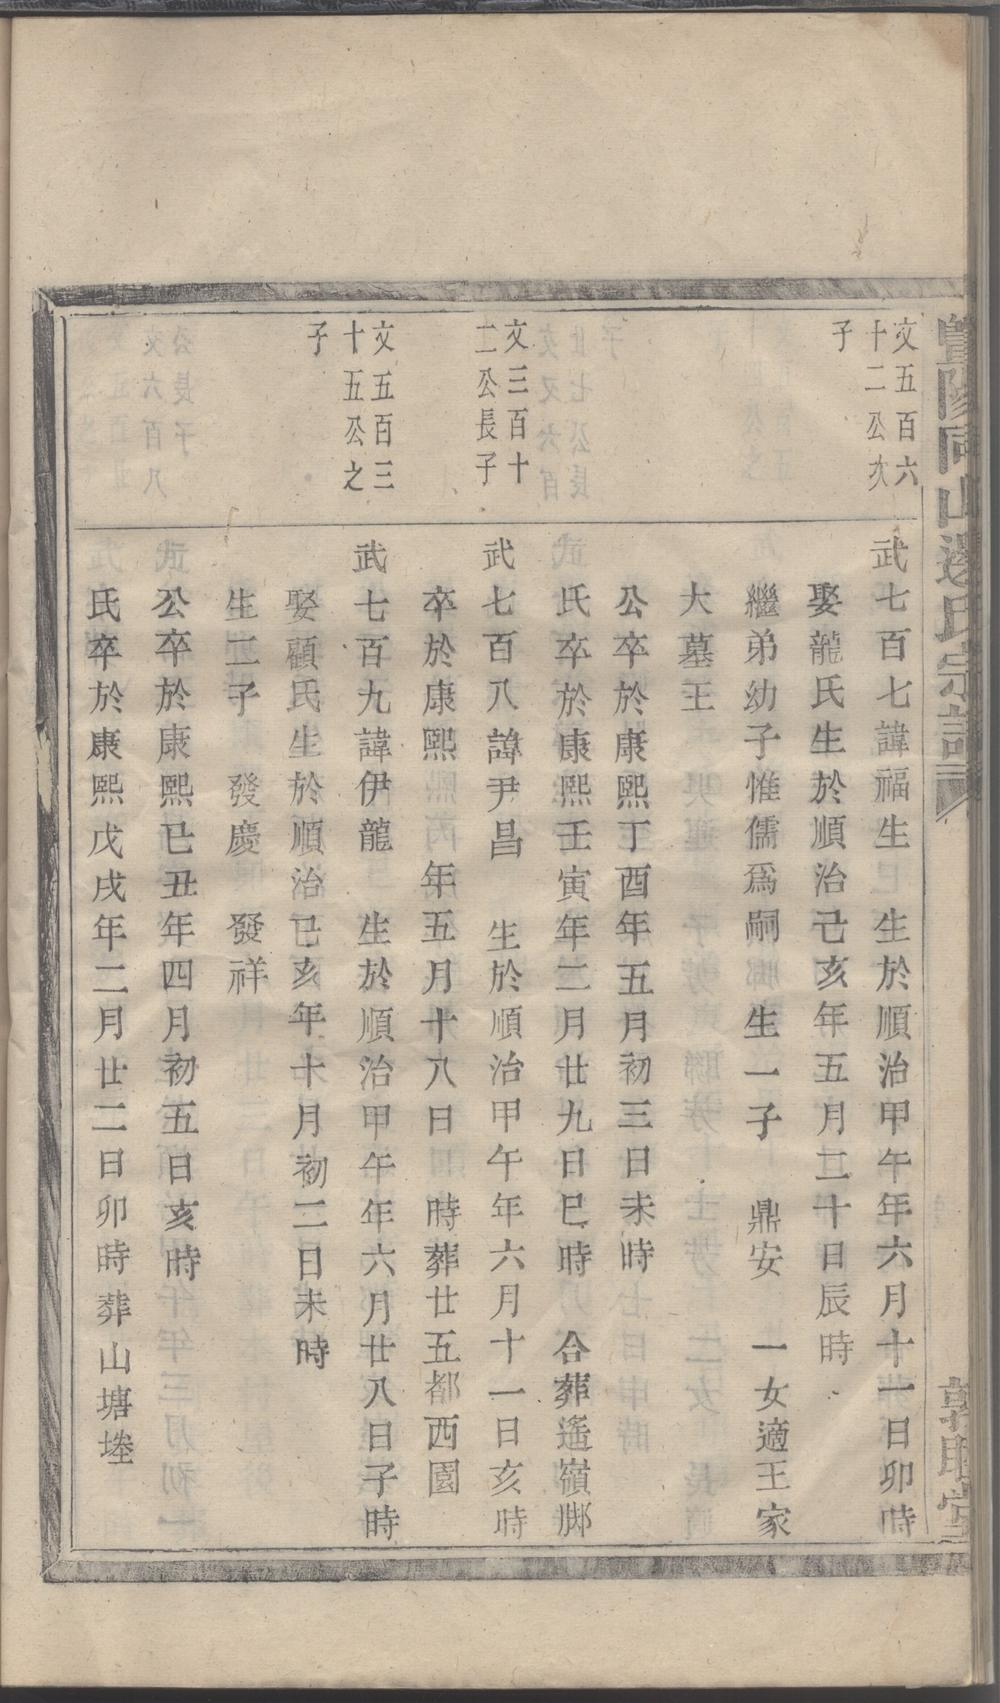 暨陽同山邊氏宗譜
敦睦堂
文五百六
十二公次
子
武七百七諱福生 生於順治甲午年六月十一日卯時
娶龍氏生於順治己亥年五月二十日辰時
繼弟幼子惟儒爲嗣 生一子 鼎安 一女適王家
大墓王
公卒於康熙丁酉年五月初三日未時
氏卒於康熙壬寅年二月廿九日巳時 合葬遙嶺脚
文三百十
二公長子
武七百八諱尹昌 生於順治甲午年六月十一日亥時
卒於康熙 年五月十八日 時葬廿五都西園
文五百三
十五公之
子
武七百九諱伊龍 生於順治甲午年六月廿八日子時
娶顧氏生於順治己亥年十月初二日未時
生二子 發慶 發祥
公卒於康熙己丑年四月初五日亥時
氏卒於康熙戊戌年二月廿二日卯時葬山塘塋